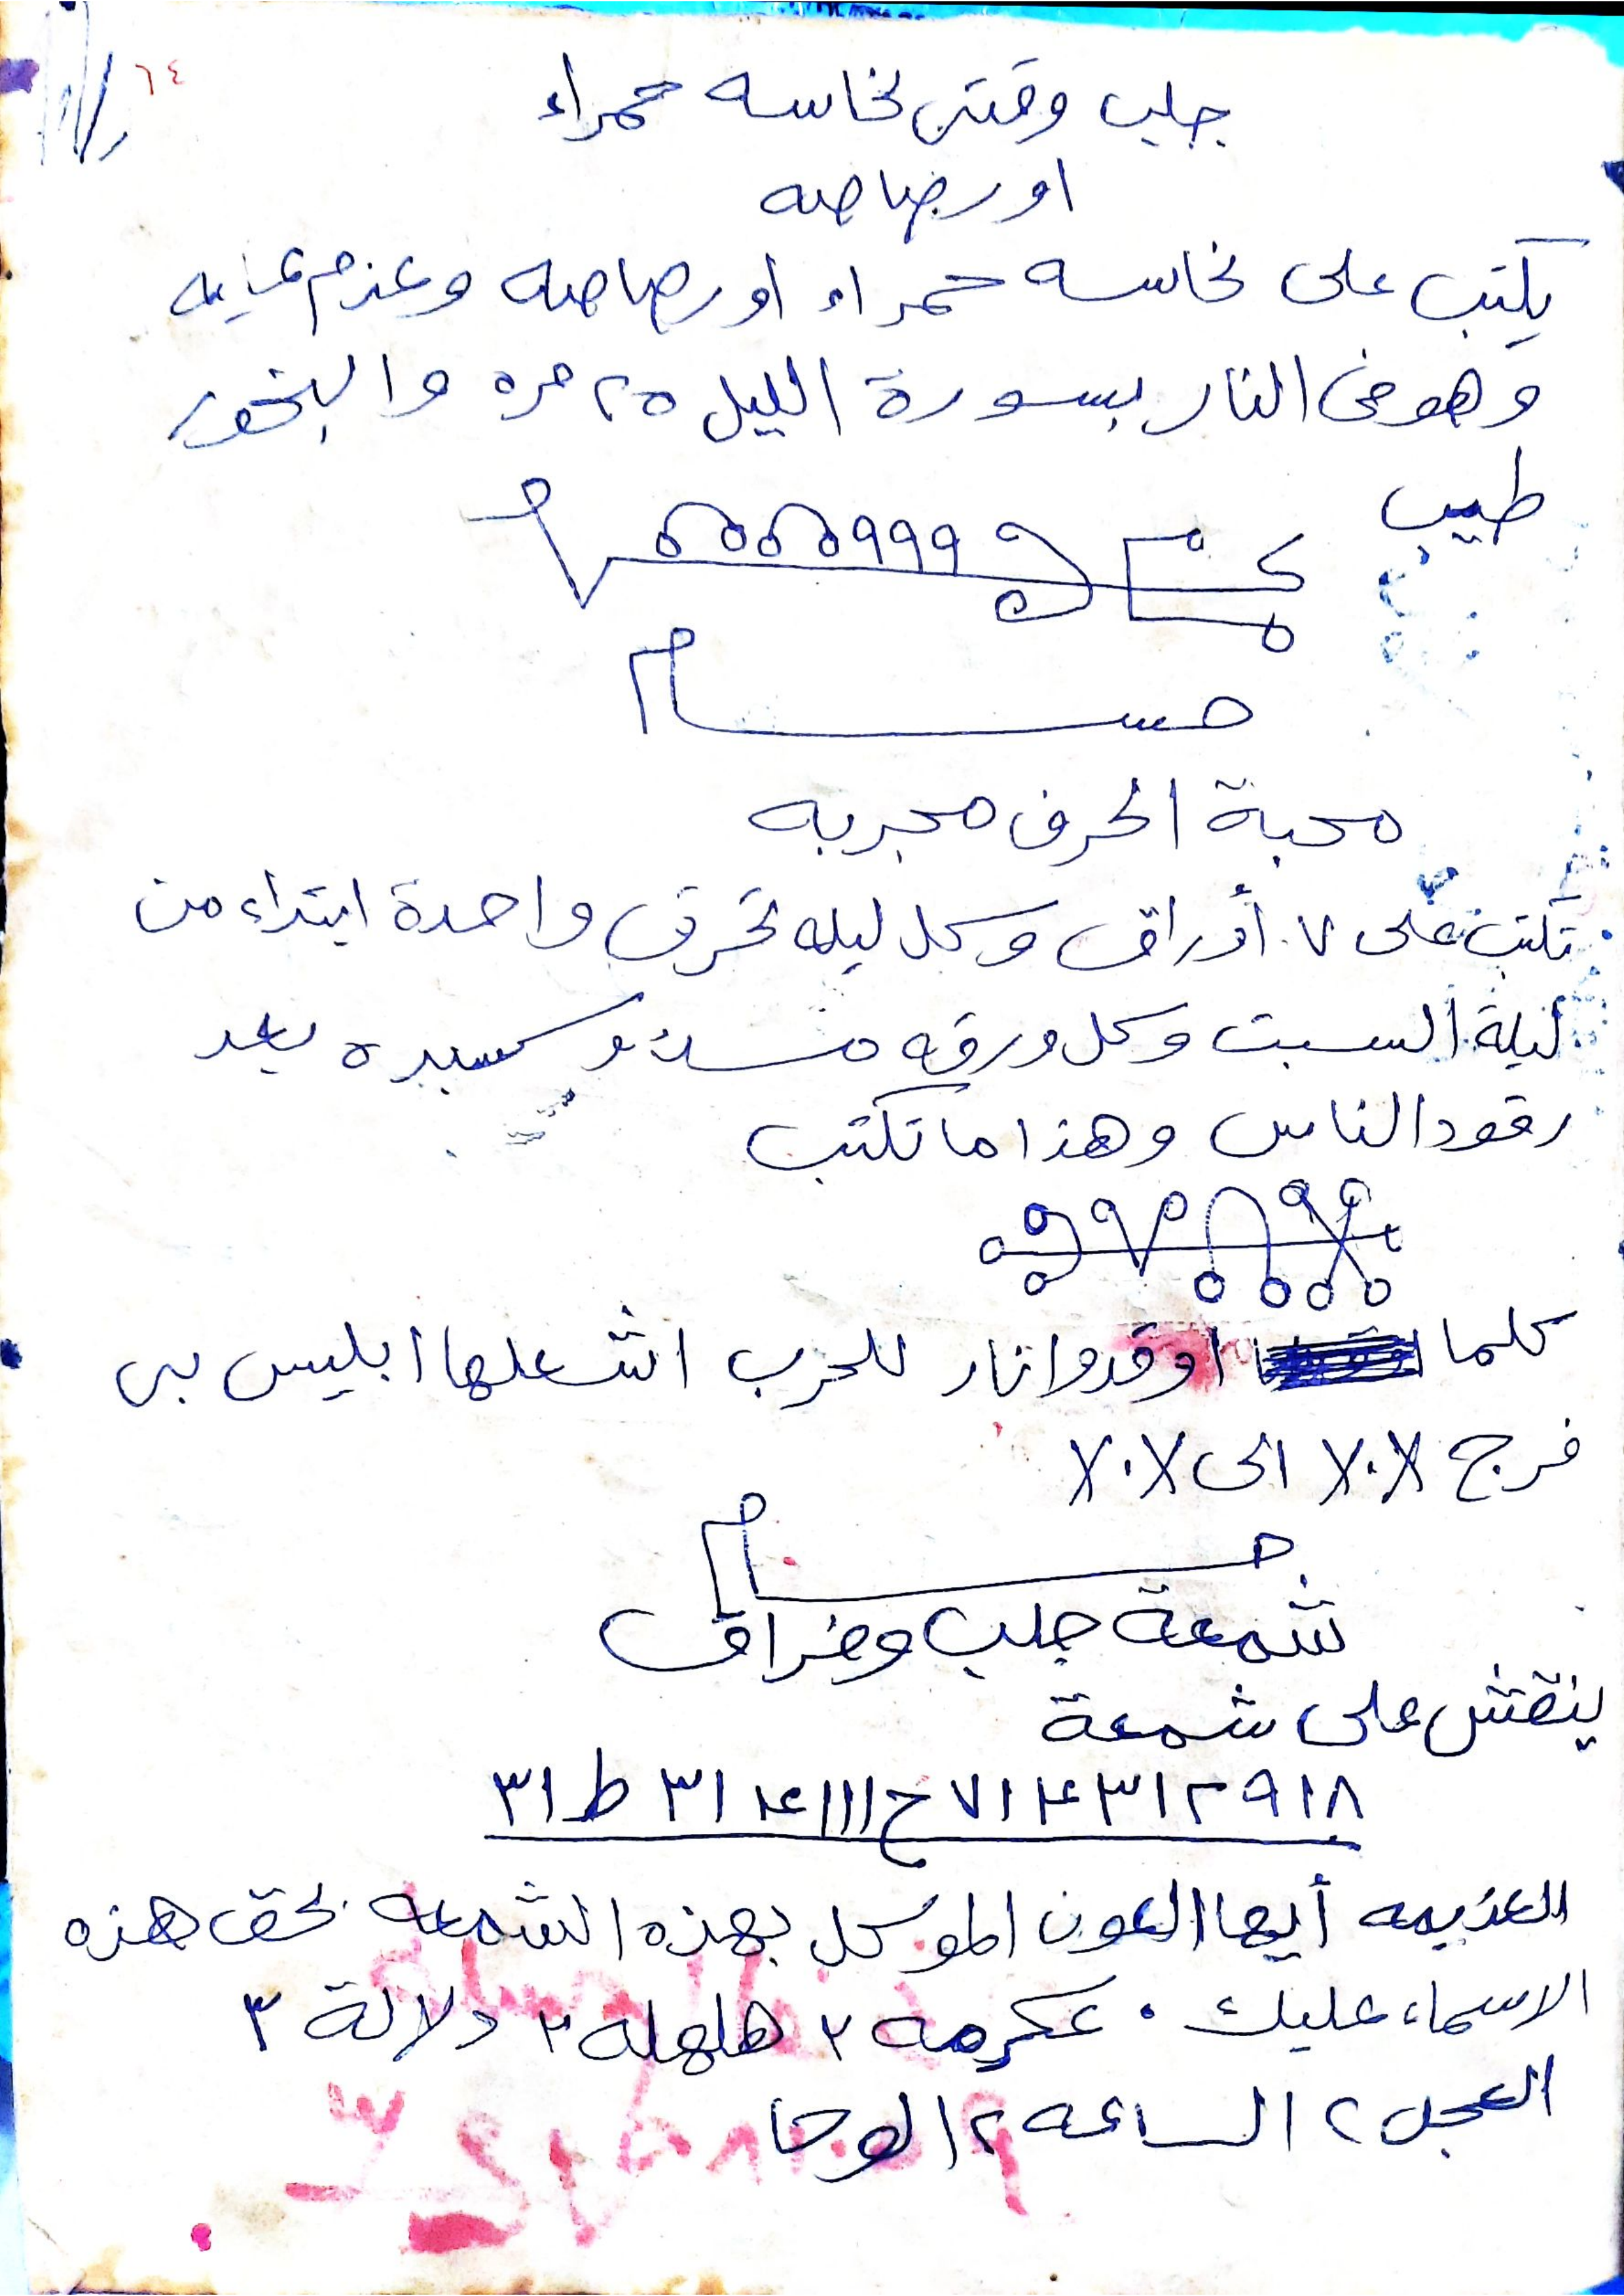 ٦٤
جلب وقتى نحاسه حمراء
او رصاصه
يكتب على نحاسه حمراء او رصاصه وعزم عليه
وهو فى النار بسورة الليل ٢٥ مره والبخور
طيب
محبة الحرف مجربه
تكتب على ٧ أوراق وكل ليله تحرق واحدة ابتداء من
ليلة السبت وكل ورقه وكسبره بعد
رقود الناس وهذا ما تكتب
كلما اوقدوا نار للحرب اشعلها ابليس بى
فرج ٧٠٨ الى ٧٠٨
شمعة جلب وفراق
ينقش على شمعة
٣١ ط ٣١ ٤ ١١١ ح ٧١ ٤ ٣١٢٩١٨
العزيمه أيها العون الموكل بهذه الشمعه بحق هذه
الاسماء عليك . عكرمه ٢ هلهله ٢ دلالة ٣
العجل ٢ الساعه ٢ الوحا